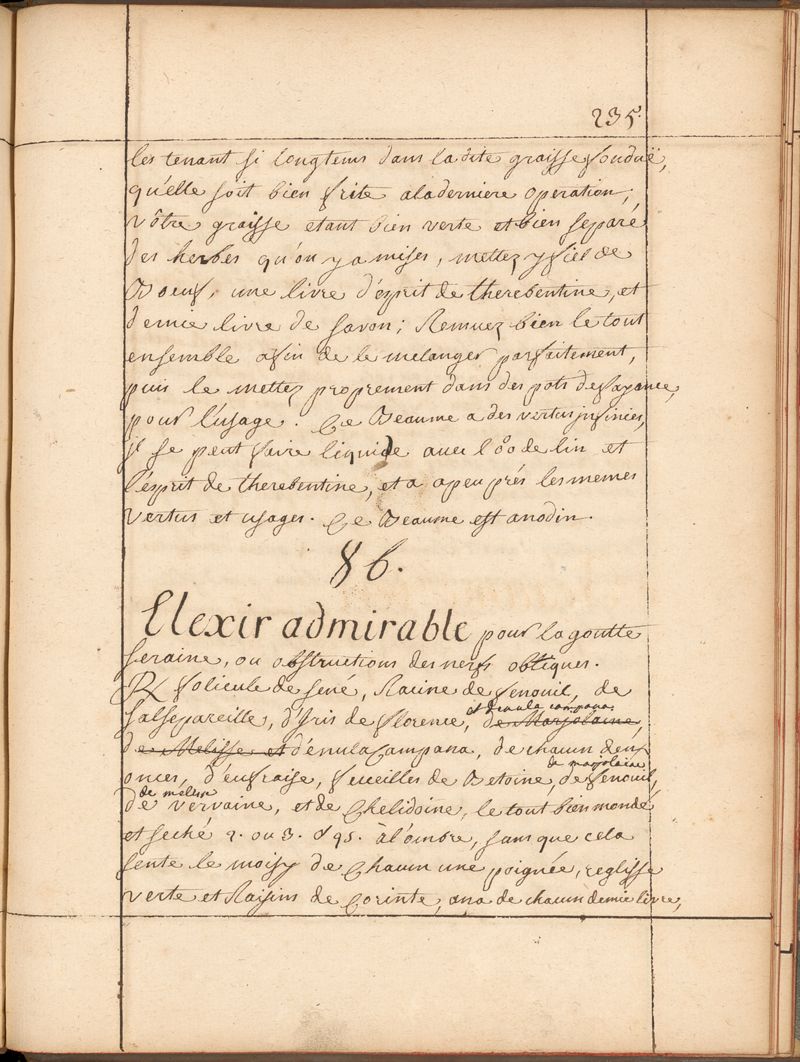 235.
les tenant si longtems dans la dite graisse fonduë,
qu'elle soit bien frite a la derniere operation;
vôtre graisse etant bien verte et bien separé
des herbes qu'on y a mises, mettez y fiel de
Boeuf, une livre d'esprit de therebentine, et
demie livre de savon; Remuez bien le tout
ensemble afin de le melanger parfaitement,
puis le mettez proprement dans des pots de fayance,
pour l'usage. Ce Beaume a des vertus infinies,
il se peut faire liquide avec l'oo de lin et
l'esprit de therebentine, et a a peu prés les memes
vertus et usages. Ce Beaume est anodin.
86.
Elexir admirable pour la goutte
seraine, ou obstructions des nerfs obtiques.
℞ folicule de sené, Racine de fenouil, de
et d'enula campana
salsepareille, d'Iris de florence, de Marjolaine,
de Melisse et d'enula Campana, de chacun deux
de marjolaine
onces, d'eufraise, feueilles de Betoine, de fenouil,
de melisse
de vervaine, et de Chelidoine, le tout bien mondé
et seché 2. ou 3. js. à l'ombre, sans que cela
sente le moisy de Chacun une poignée, reglisse
verte et Raisins de Corinte, ana de chacun demie livre,